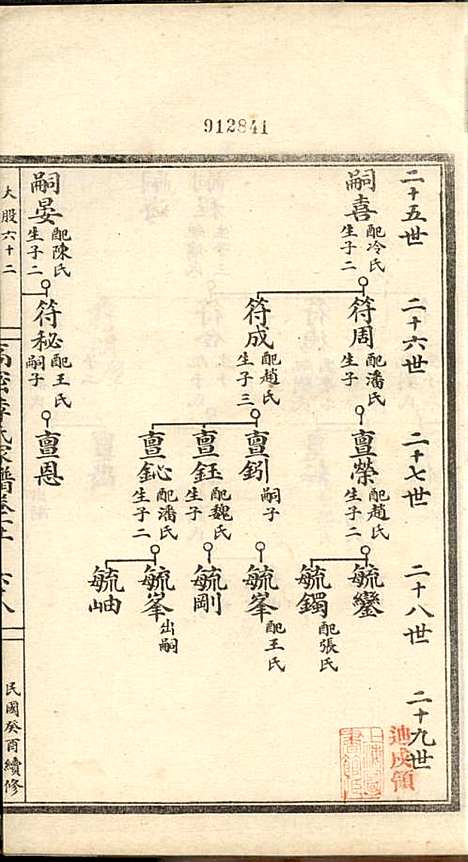 912841
二十五世
二十六世
二十七世
二十八世
二十九世
嗣喜
配冷氏
生子二
符周
配潘氏
生子
亶榮
配趙氏
生子二
毓鑾
毓鐲
配張氏
符成
配趙氏
生子三
亶釗
嗣子
毓峯
配王氏
亶鈺
配魏氏
生子
毓剛
亶鉍
配潘氏
生子二
毓峯
出嗣
毓岫
嗣晏
配陳氏
生子二
符秘
配王氏
嗣子
亶恩
大股六十二
高密李氏家譜卷
民國癸酉續修
迪成領